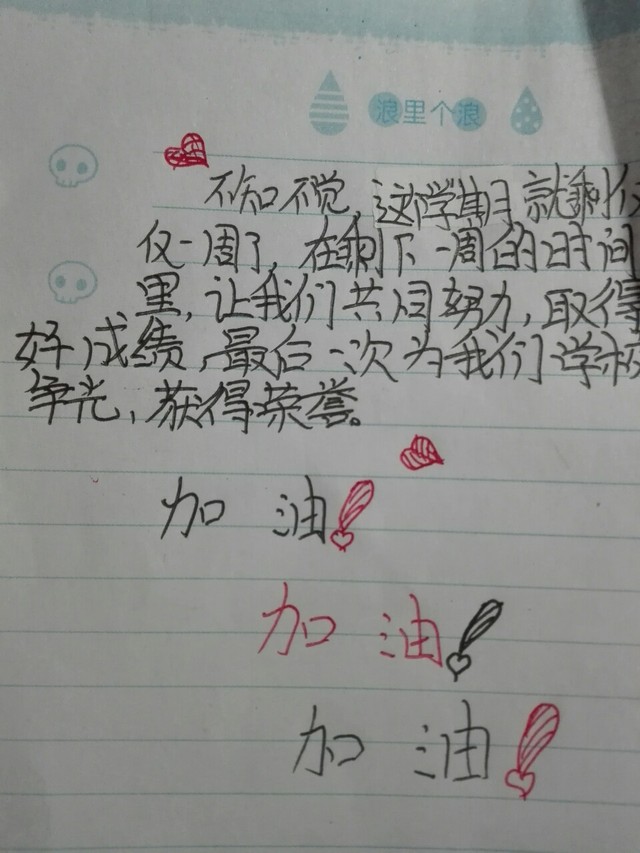 浪里个浪
不知不觉,这学期就剩仅
仅一周了,在剩下一周的时间
里,让我们共同努力,取得
好成绩,最后一次为我们学校
争光,获得荣誉。
加油!
加油!
加油!